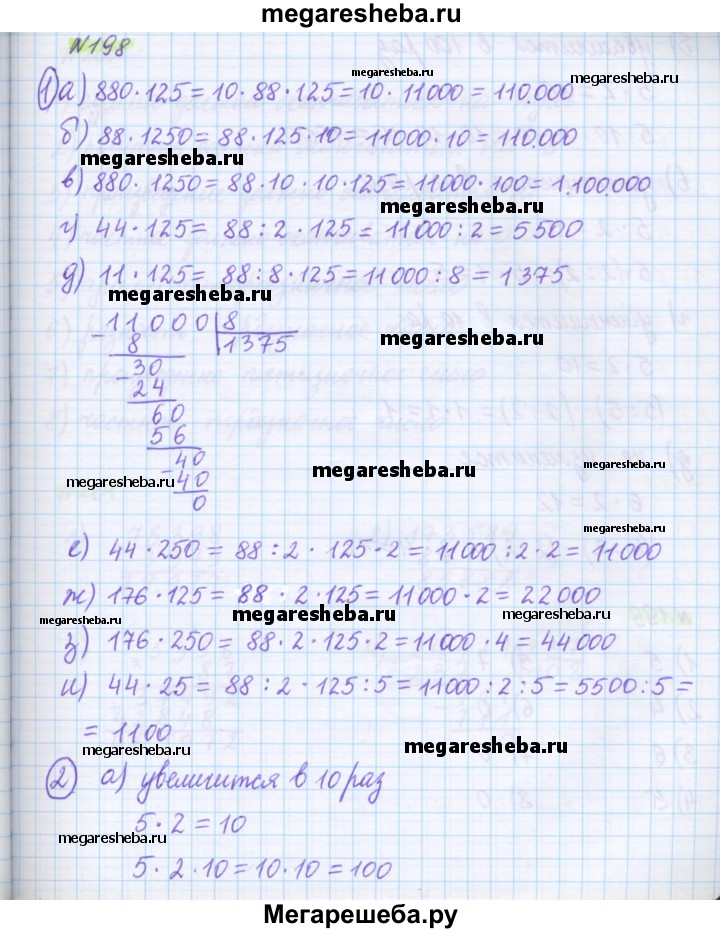 megaresheba.ru
№198
megaresheba.ru
megaresheba.ru
1) а) 880·125=10·88·125=10·11000=110.000
б) 88·1250=88·125·10=11000·10=110.000
megaresheba.ru
в) 880·1250=88·10·10·125=11000·100=1.100.000
megaresheba.ru
г) 44·125= 88:2·125=11000:2=5500
д) 11·125= 88:8·125=11000:8=1375
megaresheba.ru
- 11000 | 8
8 1375
megaresheba.ru
- 30
24
60
56
megaresheba.ru
- 40
megaresheba.ru
40
0
megaresheba.ru
е) 44·250=88:2·125·2=11000:2·2=11000
ж) 176·125=88·2·125=11000·2=22000
megaresheba.ru
megaresheba.ru
megaresheba.ru
з) 176·250=88·2·125·2=11000·4=44000
и) 44·25=88:2·125:5=11000:2:5=5500:5=
=1100
megaresheba.ru
megaresheba.ru
2) а) увеличится в 10 раз
5·2=10
megaresheba.ru
5·2·10=10·10=100
Мегарешеба.ру